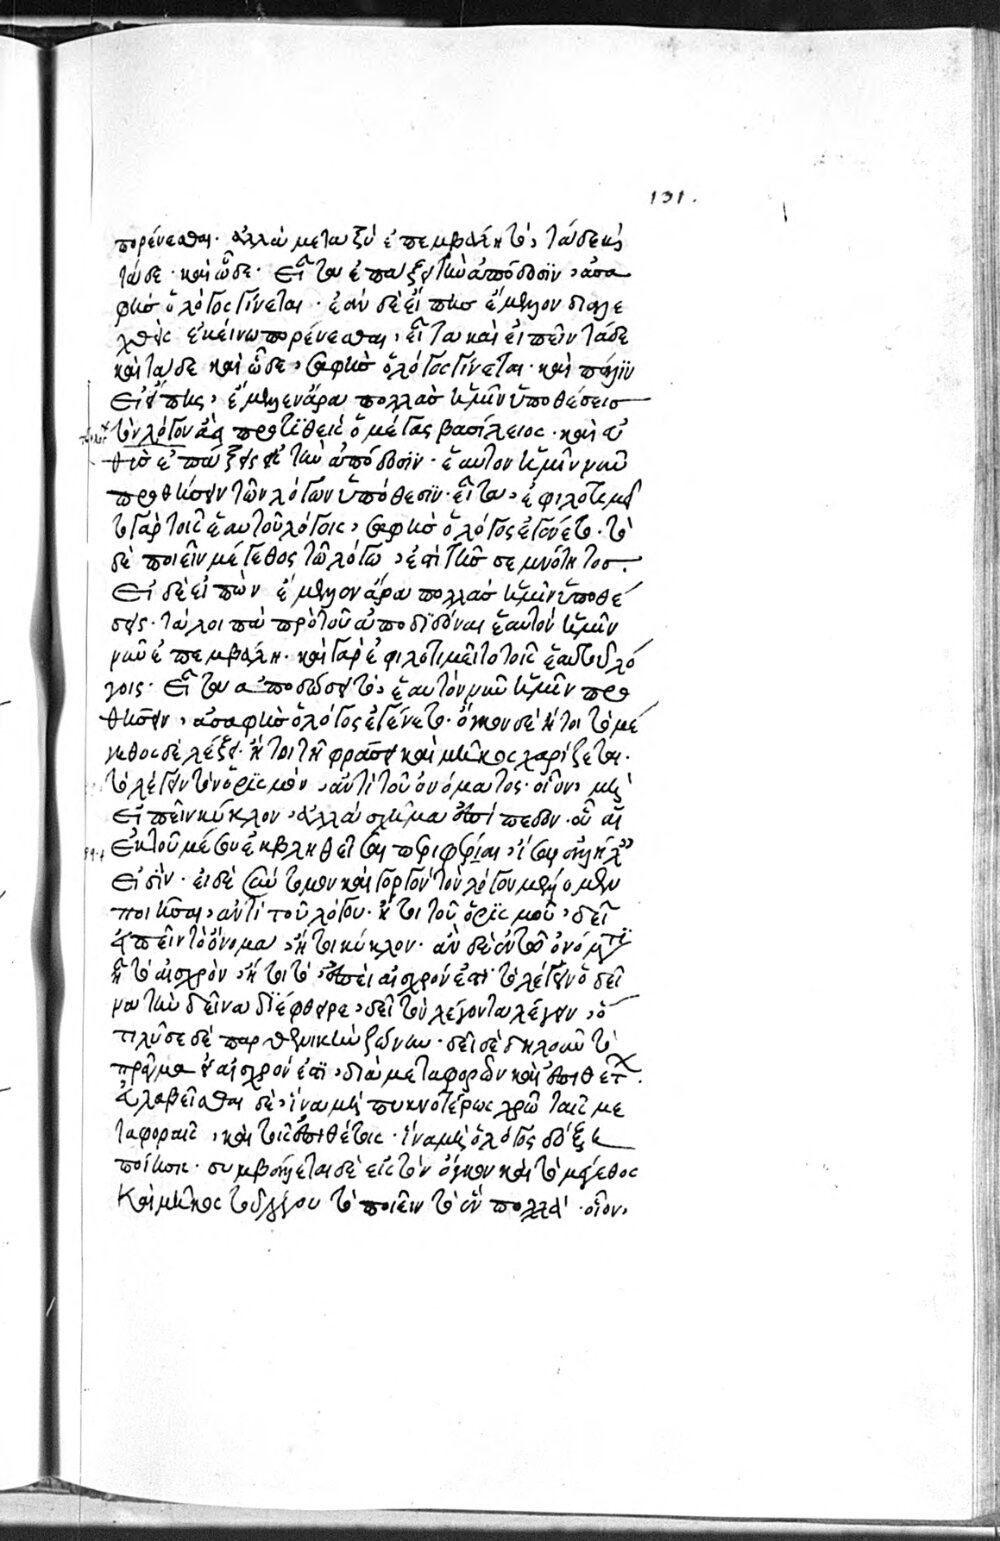 131.
πορεύεσθαι. ἀλλὰ μεταξὺ ἐπεμβάλη τὸ, τάδε κ
τάδε. καὶ ὧδε. εἶτα ἐπάξει τὴν ἀπόδοσιν, ἀσα
φὴς ὁ λόγος γίνεται. ἐὰν δὲ εἴπης ἔμελλον διαλε
χθεὶς ἐκείνω πορεύεσθαι, εἶτα καὶ εἰπεῖν τάδε
καὶ τάδε καὶ ὧδε, σαφὴς ὁ λόγος γίνεται. καὶ πάλιν
εἰ εἴπης, ἔμελλεν ἄρα πολλὰς ἡμῖν ὑποθέσεις
τῶν λόγων ἀεὶ προτιθεὶς ὁ μέγας βασίλειος. καὶ εὐ
θὺς ἐπάξεις τὴν ἀπόδοσιν. ἑαυτὸν ἡμῖν νῦν
προθήσειν τῶν λόγων ὑπόθεσιν. εἶτα, ἐφιλοτιμεῖ
το γὰρ τοῖς ἑαυτοῦ λόγοις, σαφὴς ὁ λόγος ἐγένετο. τὸ
δὲ ποιεῖν μέγεθος τῶ λόγω, ἐστὶ τῆς σεμνότητος.
εἰ δὲ εἰπὼν ἔμελλεν ἄρα πολλὰς ἡμῖν ὑποθέ
σεις. τὰ λοιπὰ πρὸ τοῦ ἀποδιδόναι ἑαυτὸν ἡμῖν
νῦν ἐπεμβάλη. καὶ γὰρ ἐφιλοτιμεῖτο τοῖς ἑαυτοῦ λό
γοις. εἶτα ἀποδώσει τὸ, ἑαυτὸν νῦν ἡμῖν προ
θήσειν, ἀσαφὴς ὁ λόγος ἐγένετο. ὄγκον δὲ ἤτοι τὸ μέ
γεθος δὲ λέξει. ἤτοι τῆ φράσει καὶ μῆκος χαρίζεται.
τὸ λέγειν τὸν ὁρισμὸν, ἀντὶ τοῦ ὀνόματος. οἷον, μὴ
εἰπεῖν κύκλον, ἀλλὰ σχῆμα ἐπίπεδον. οὗ αἱ
ἐκ τοῦ μέσου ἐκβληθεῖσαι περιφερίαι, ἴσαι ἀλλήλαις
εἰσὶν. εἰ δὲ σύντομον καὶ γοργὸν τὸν λόγον μέλλομεν
ποιῆσαι, ἀντὶ τοῦ λόγου. ἤτοι τοῦ ὁρισμοῦ, δεῖ
εἰπεῖν τὸ ὄνομα, ἤτοι κύκλον. ἂν δὲ ἐν τῶ ὀνόματι
ἦ τὸ αἰσχρὸν, ἤτοι τὸ, ἐπεὶ αἰσχρόν ἐστι τὸ λέγειν ὁ δεῖ
να τὴν δεῖνα διέφθειρε, δεῖ τὸν λέγοντα λέγειν, ὅ
τι λῦσε δὲ παρθενικὴν ζώνην. δεῖ σε δηλοῦν τὸ
πρᾶγμα εἰ αἰσχρόν ἐστι, διὰ μεταφορῶν καὶ ἐπιθέτων.
εὐλαβεῖσθαι δὲ, ἵνα μὴ πυκνοτέρως χρῶ ταῖς με
ταφοραῖς, καὶ τοῖς ἐπιθέτοις. ἵνα μὴ ὁ λόγος δόξη
ποίησις. συμβάλλεται δὲ εἰς τὸν ὄγκον καὶ τὸ μέγεθος
καὶ μῆκος τοῦ λόγου τὸ ποιεῖν τὸ ἓν πολλά. οἷον,